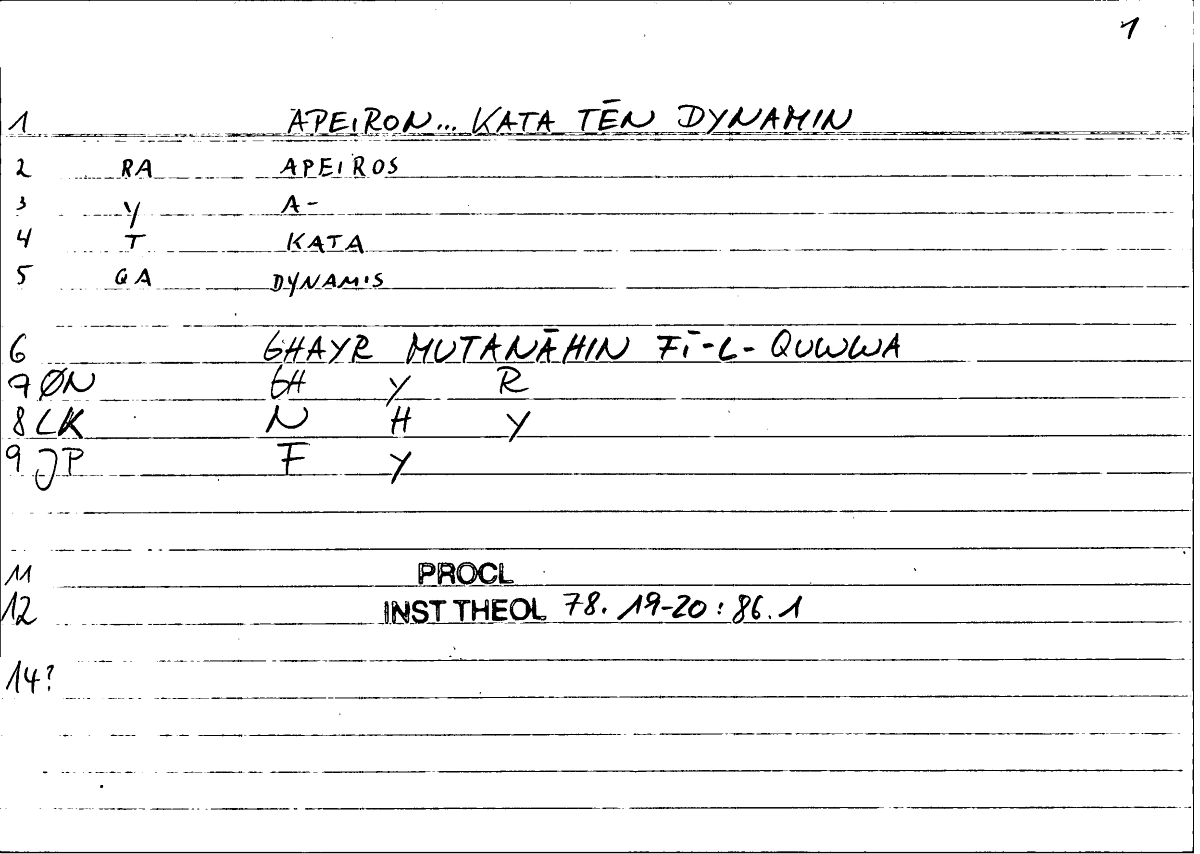 1
1 APEIRON... KATA TĒN DYNAMIN
2 RA APEIROS
3 Y A-
4 T KATA
5 QA DYNAMIS
6 GHAYR MUTANĀHIN FĪ-L-QUWWA
7 ØN GH Y R
8 LK N H Y
9 JP F Y
11 PROCL
12 INST THEOL 78. 19-20 : 86. 1
14?